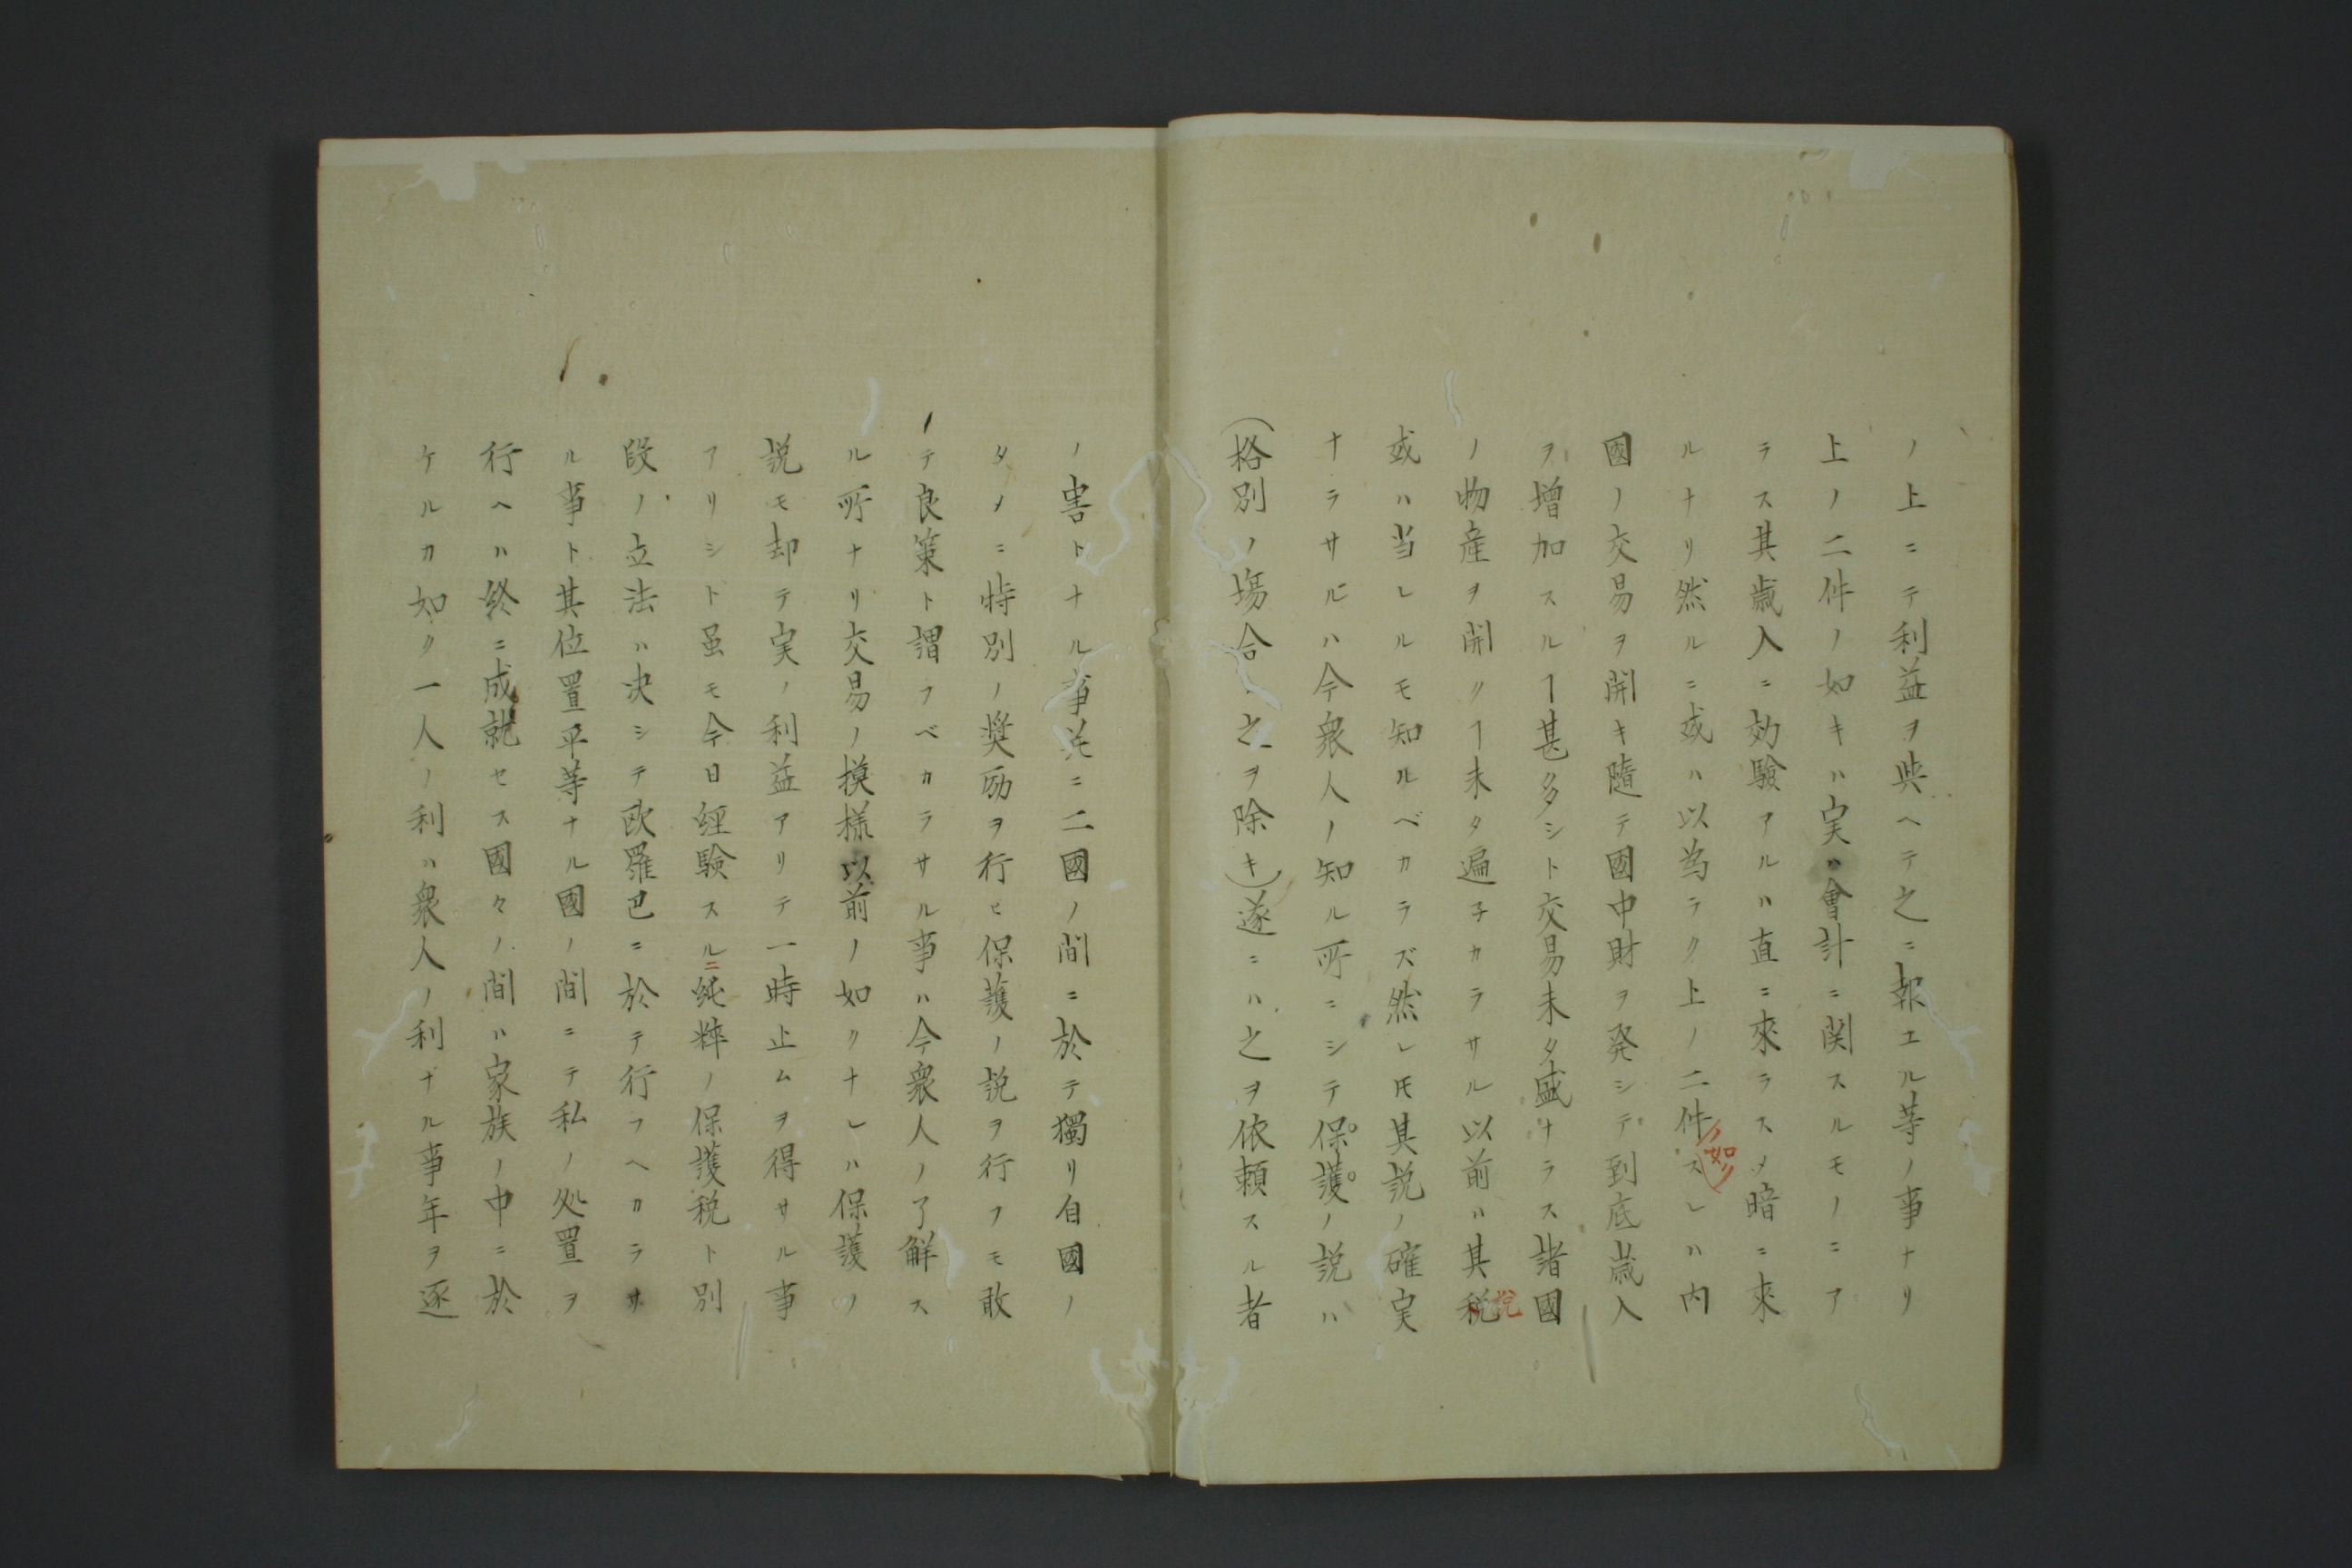 ノ上ニテ利益ヲ與ヘテ之ニ報エル等ノ事ナリ
上ノ二件ノ如キハ実ハ會計ニ関スルモノニア
ラス其歳入ニ効驗アルハ直ニ來ラスメ暗ニ來
ルナリ然ルニ或ハ以為ラク上ノ二件ノ如クスレハ内
國ノ交易ヲ開キ隨テ國中財ヲ発シテ到底歳入
ヲ増加スルヿ甚多シト交易未タ盛ナラス諸國
ノ物産ヲ開クヿ未タ遍子カラサル以前ハ其税説
或ハ当レルモ知ルベカラズ然レ𪜈其説ノ確実
ナラサルハ今衆人ノ知ル所ニシテ保護ノ説ハ
(格別ノ塲合之ヲ除キ)遂ニハ之ヲ依頼スル者
ノ害トナル事必ニ二國ノ間ニ於テ獨リ自國ノ
タメニ特別ノ奨励ヲ行ヒ保護ノ説ヲ行フモ敢
テ良策ト謂フベカラサル事ハ今衆人ノ了解ス
ル所ナリ交易ノ摸様以前ノ如クナレハ保護ノ
説モ却テ実ノ利益アリテ一時止ムヲ得サル事
アリシト虽モ今日経驗スルニ純粹ノ保護税ト別
段ノ立法ハ決シテ欧羅巴ニ於テ行フヘカラサ
ル事ト其位置平等ナル國ノ間ニテ私ノ処置ヲ
行ヘハ終ニ成就セス國々ノ間ハ家族ノ中ニ於
ケルカ如ク一人ノ利ハ衆人ノ利ナル事年ヲ逐